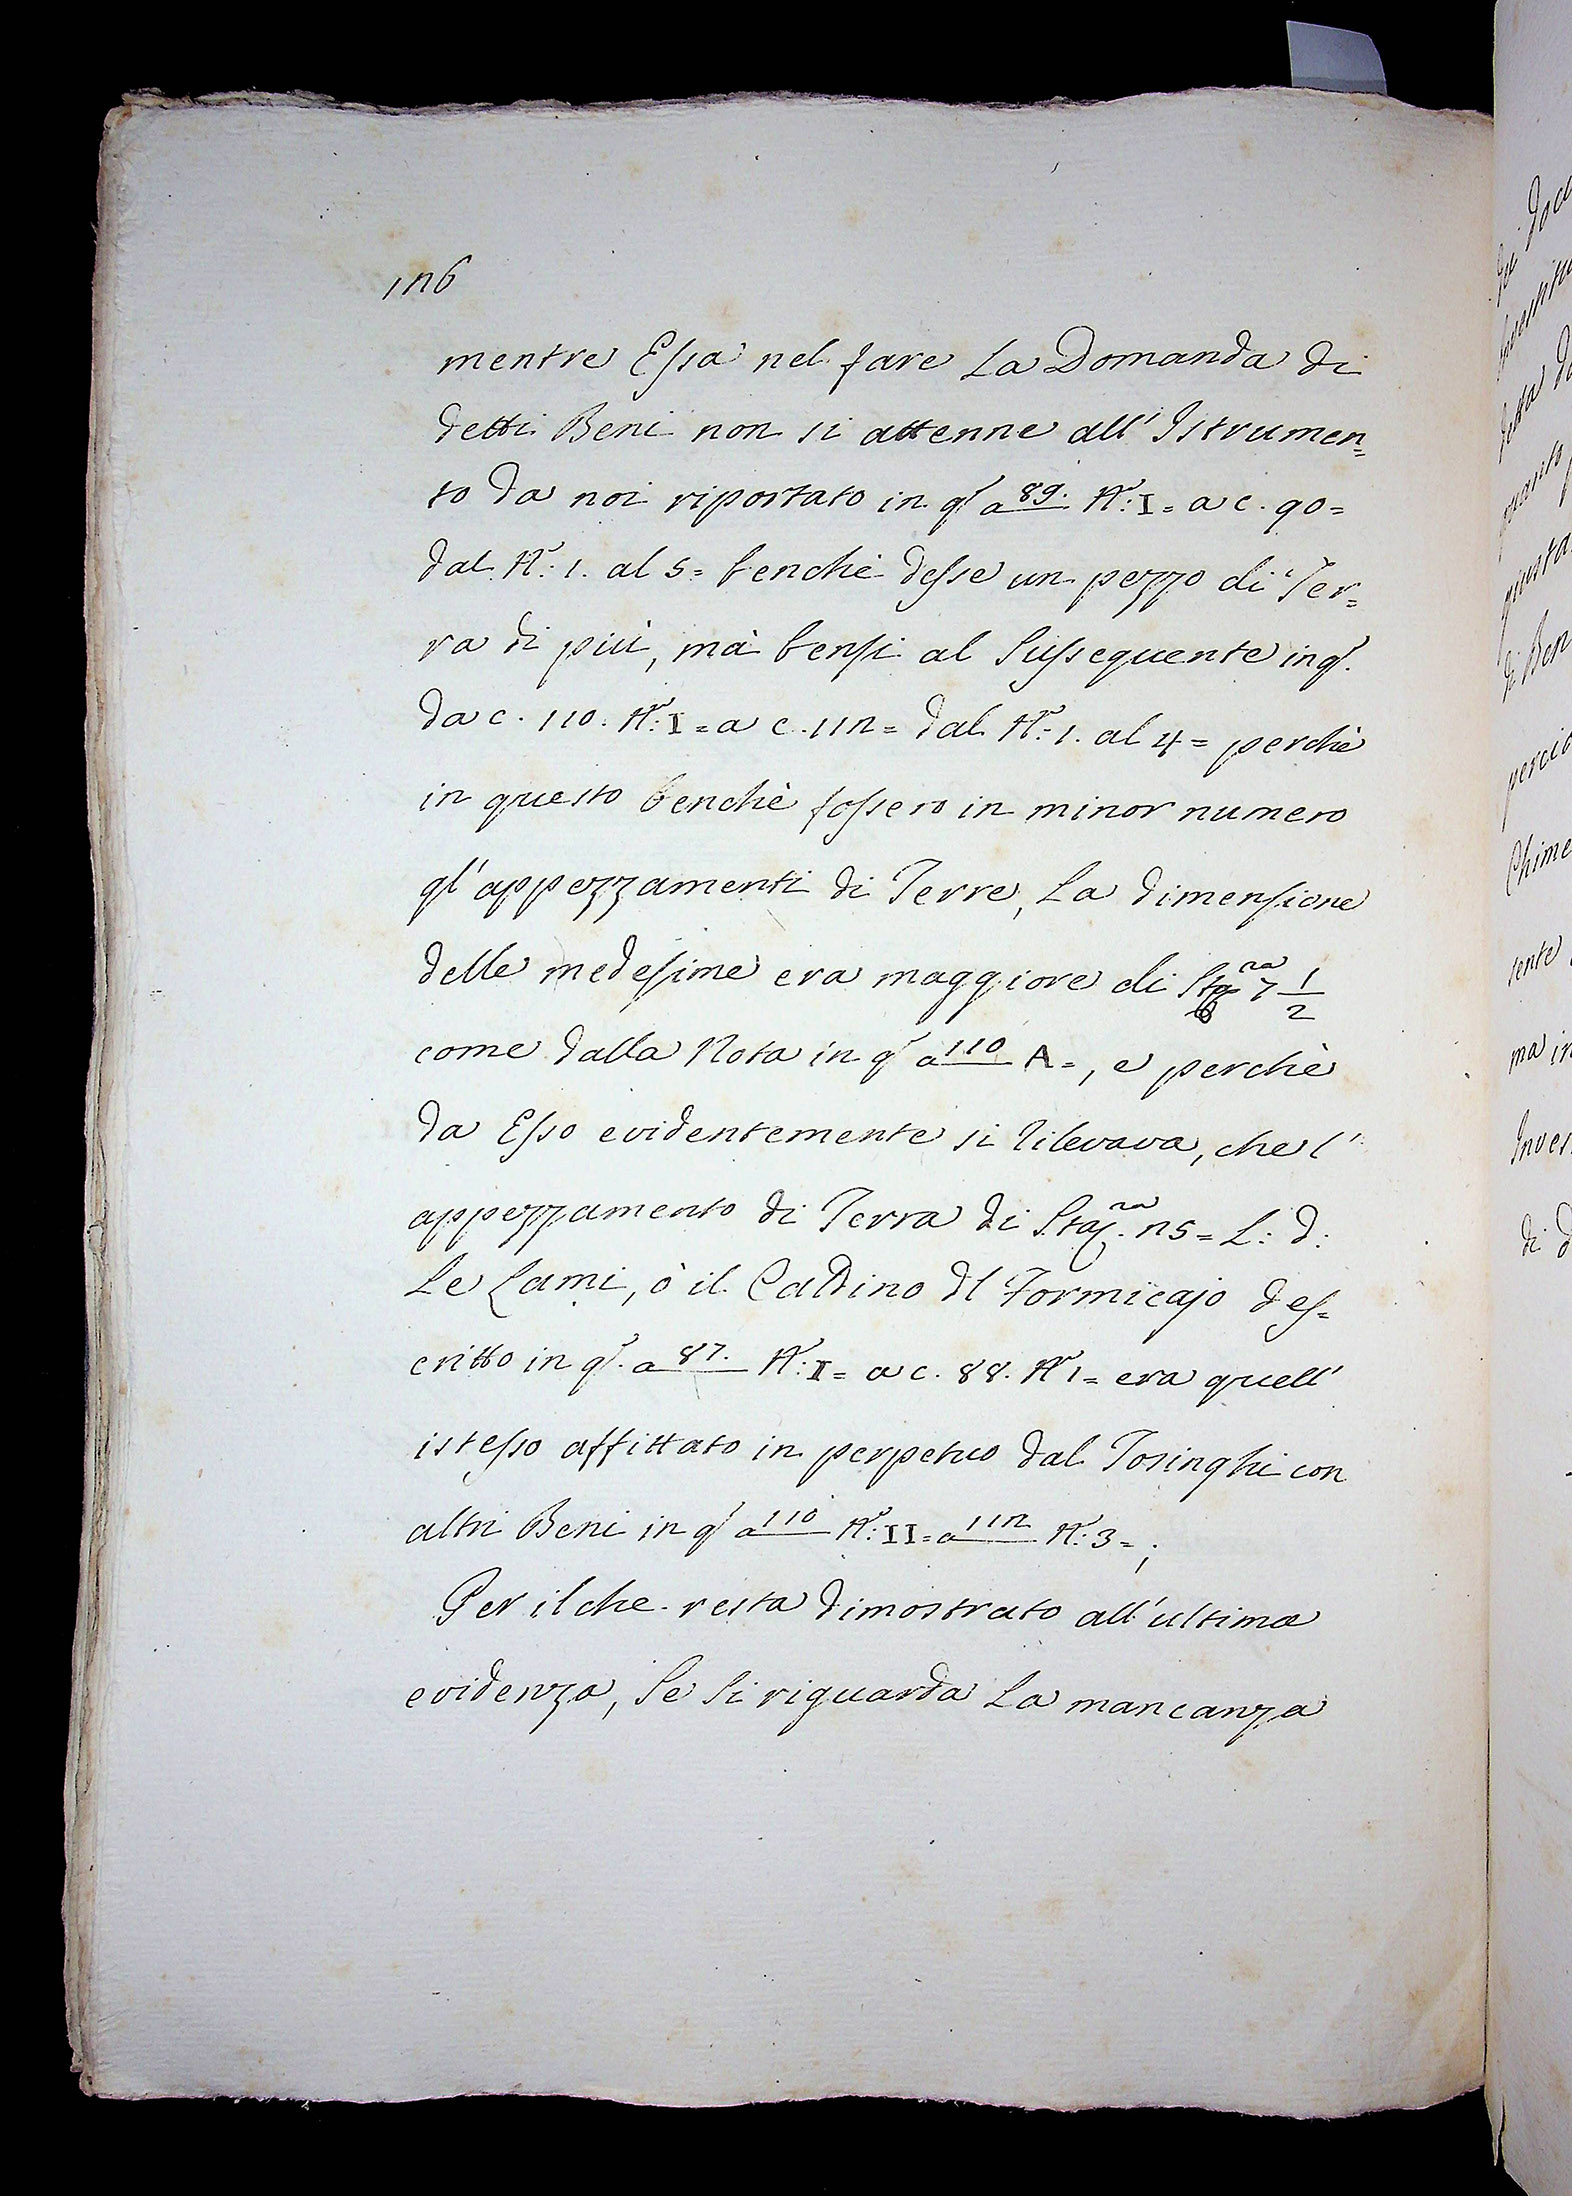 126
mentre Essa nel fare La Domanda di
detti Beni non si attenne all'Istrumen=
to da noi riportato in qsto a 89. No: I = a c. 90 =
dal No: 1. al 5 = benchè desse un pezzo di Ter=
ra di più, mà bensi al Sussequente in qsto.
da c. 110. No: I = a c. 112 = dal No: 1. al 4 = perchè
in questo benchè fossero in minor numero
gl'appezzamenti di Terre, La dimensione
delle medesime era maggiore di 7 1/2
come dalla Nota in qsto a 110 A =, e perchè
da Esso evidentemente si rilevava, che l'
appezzamento di Terra di Staj.ra 25 = L: d:
Le Lami, ò il Caldino dl Formicajo des=
critto in qsto. a 87. No: II = a c. 88. No 1 = era quell'
istesso affittato in perpetuo dal Tosinghi con
altri Beni in qsto a 110 No: II = a 112 No: 3 = ;
Per il che resta dimostrato all'ultima
evidenza, Se Si riguarda La mancanza